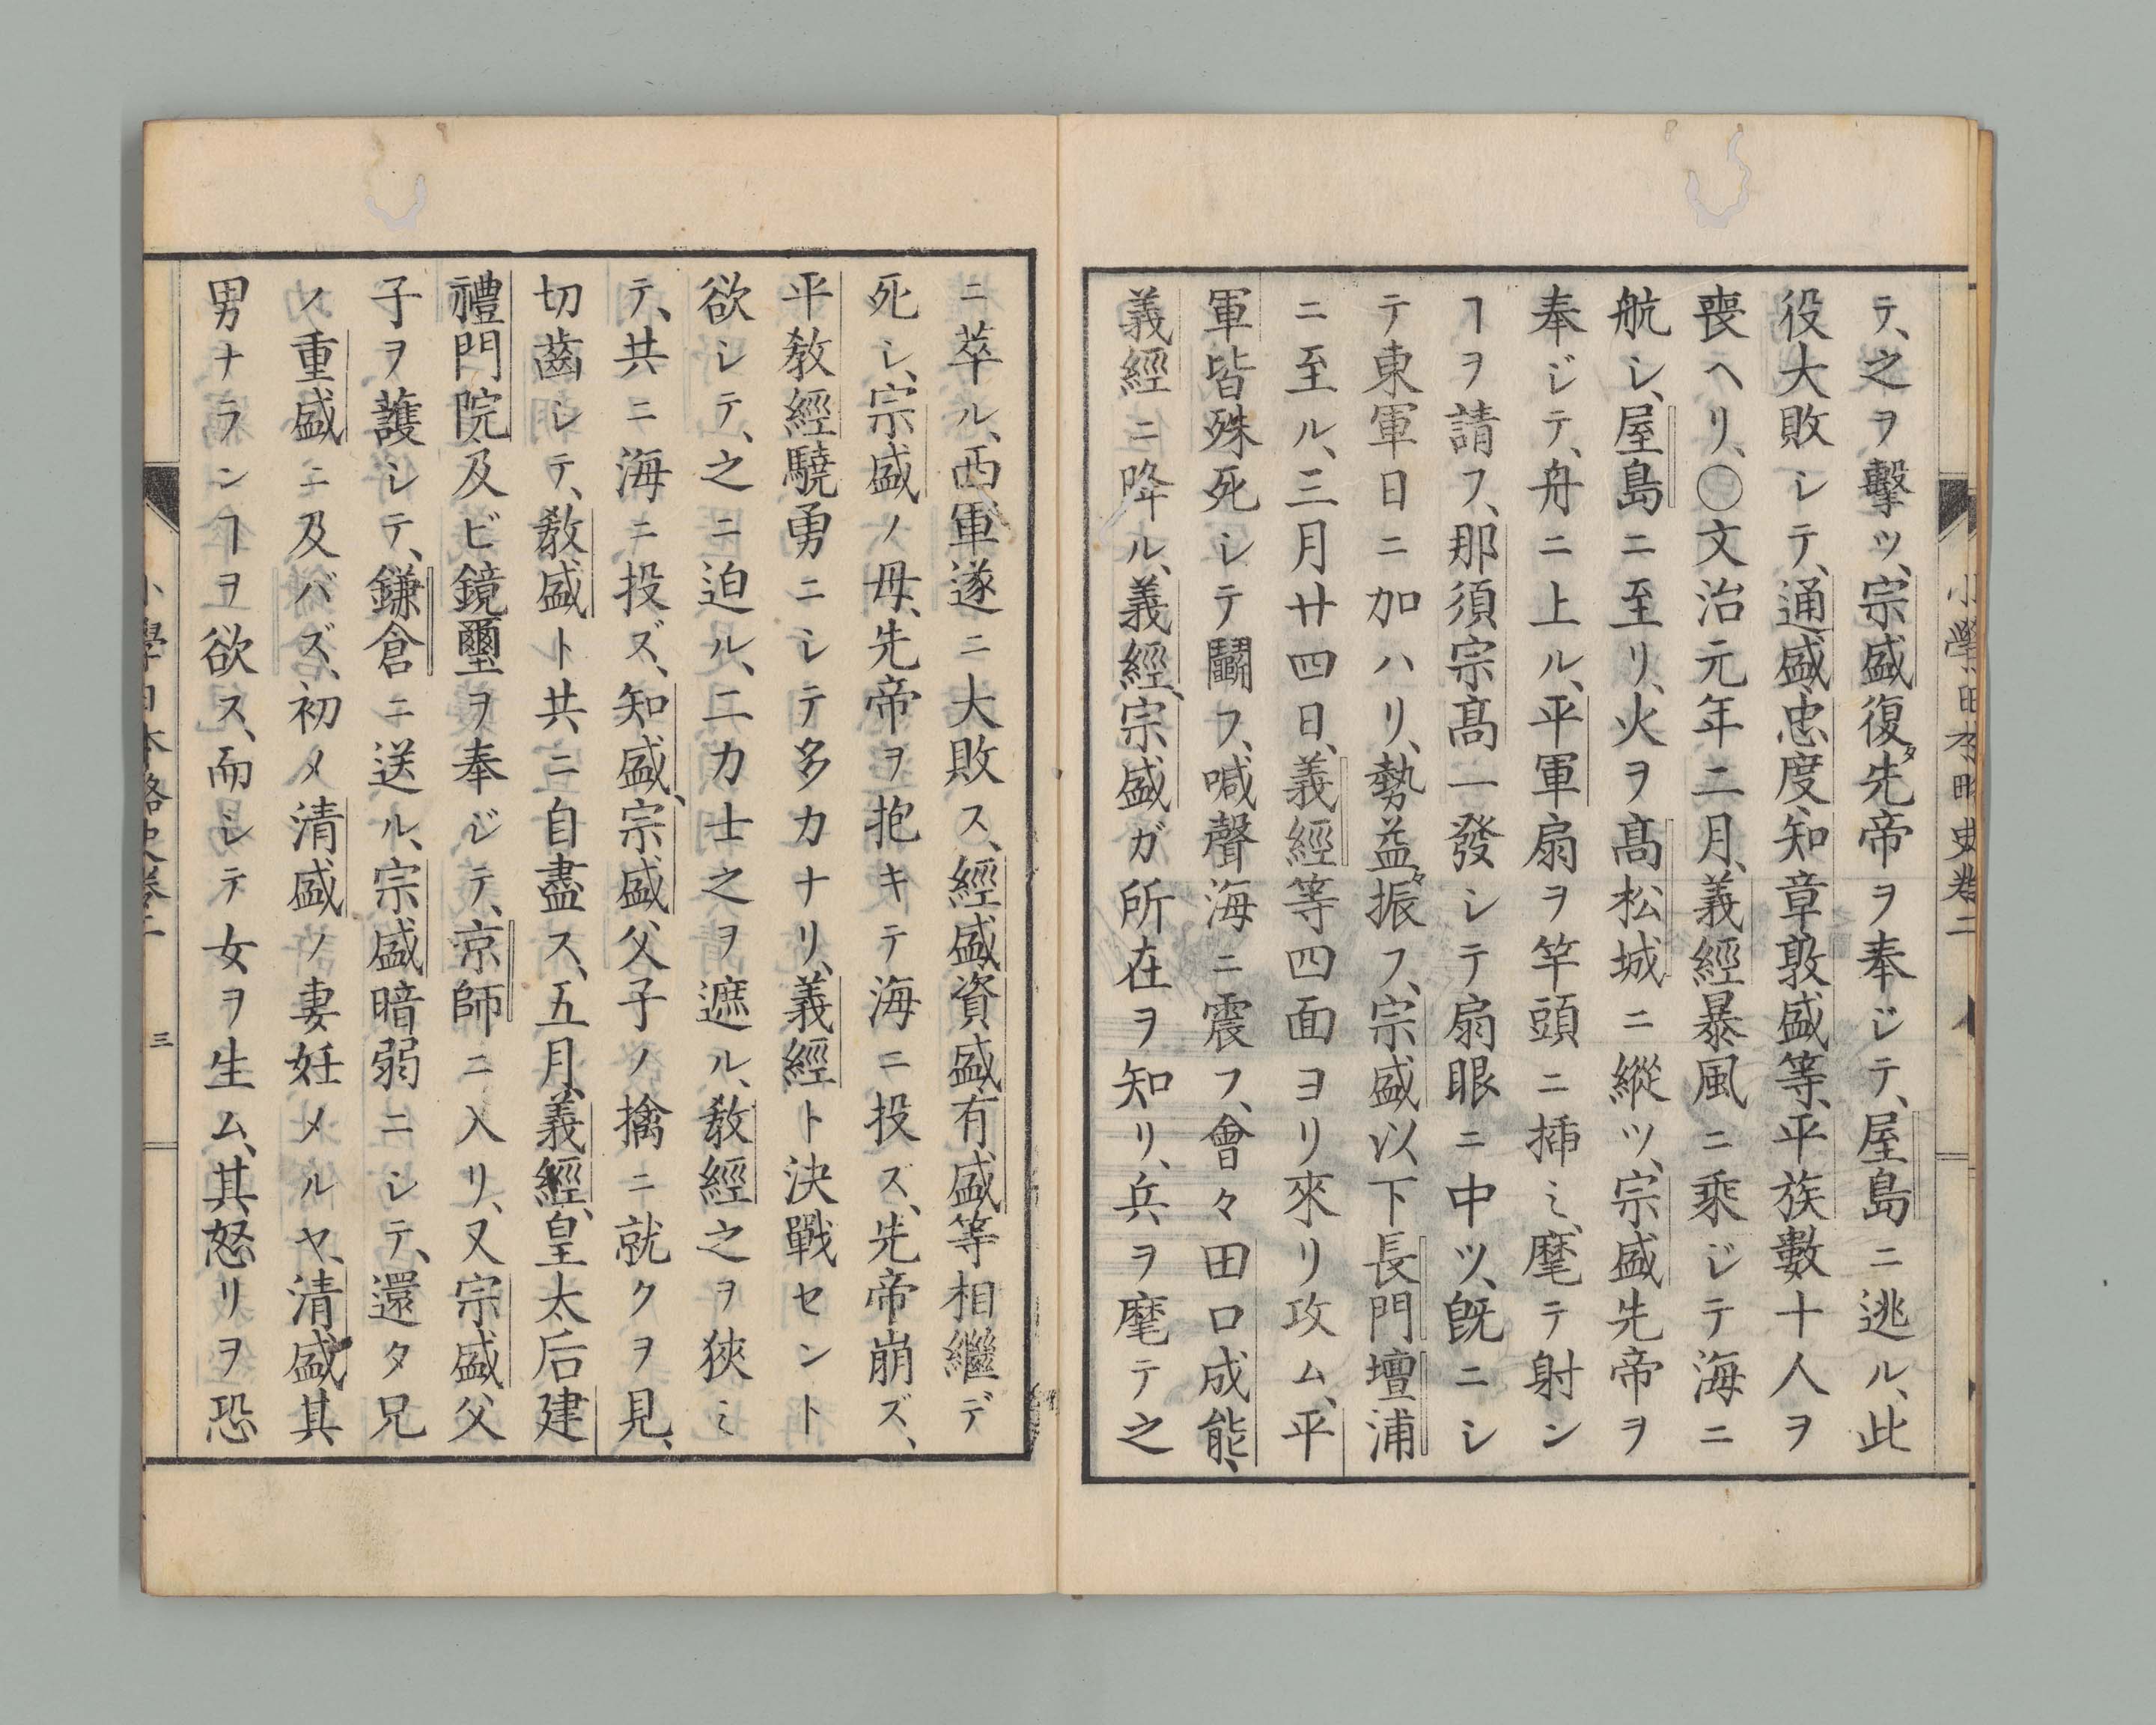 小學日本略史卷二
テ、之ヲ擊ツ、宗盛復タ先帝ヲ奉ジテ、屋島ニ逃ル、此
役大敗シテ、通盛、忠度、知章、敦盛等、平族數十人ヲ
喪ヘリ、〇文治元年二月、義經暴風ニ乘ジテ海ニ
航シ、屋島ニ至リ、火ヲ髙松城ニ縱ツ、宗盛先帝ヲ
奉ジテ、舟ニ上ル、平軍扇ヲ竿頭ニ揷ミ、麾テ射ン
ヿヲ請フ、那須宗髙一發シテ扇眼ニ中ツ、旣ニシ
テ東軍日ニ加ハリ、勢益々振フ、宗盛以下長門壇浦
ニ至ル、三月廿四日、義經等四面ヨリ來リ攻ム、平
軍皆殊死シテ鬪フ、喊聲海ニ震フ、會々田口成能、
義經ニ降ル、義經、宗盛ガ所在ヲ知リ、兵ヲ麾テ之
ニ萃ル、西軍遂ニ大敗ス、經盛資盛有盛等相繼デ
死シ、宗盛ノ母、先帝ヲ抱キテ海ニ投ズ、先帝崩ズ、
平敎經驍勇ニシテ多力ナリ、義經ト決戰セント
欲シテ、之ニ迫ル、二力士之ヲ遮ル、敎經之ヲ狹ミ
テ、共ニ海ニ投ズ、知盛、宗盛父子ノ擒ニ就クヲ見、
切齒シテ、敎盛ト共ニ自盡ス、五月、義經、皇太后建
禮門院及ビ鏡璽ヲ奉ジテ、京師ニ入リ、又宗盛父
子ヲ護シテ、鎌倉ニ送ル、宗盛暗弱ニシテ、還タ兄
ノ重盛ニ及バズ、初メ清盛ノ妻妊メルヤ、清盛其
男ナランヿヲ欲ス、而シテ女ヲ生ム、其怒リヲ恐
小學日本略史卷二　三